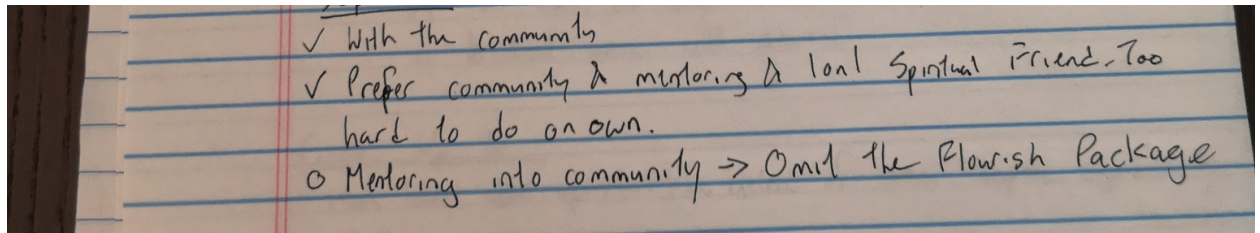 ✓ With the community
✓ Prefer community & mentoring & Spiritual Friend. Too
hard to do on own.
○ Mentoring into community → Omit the Flourish Package